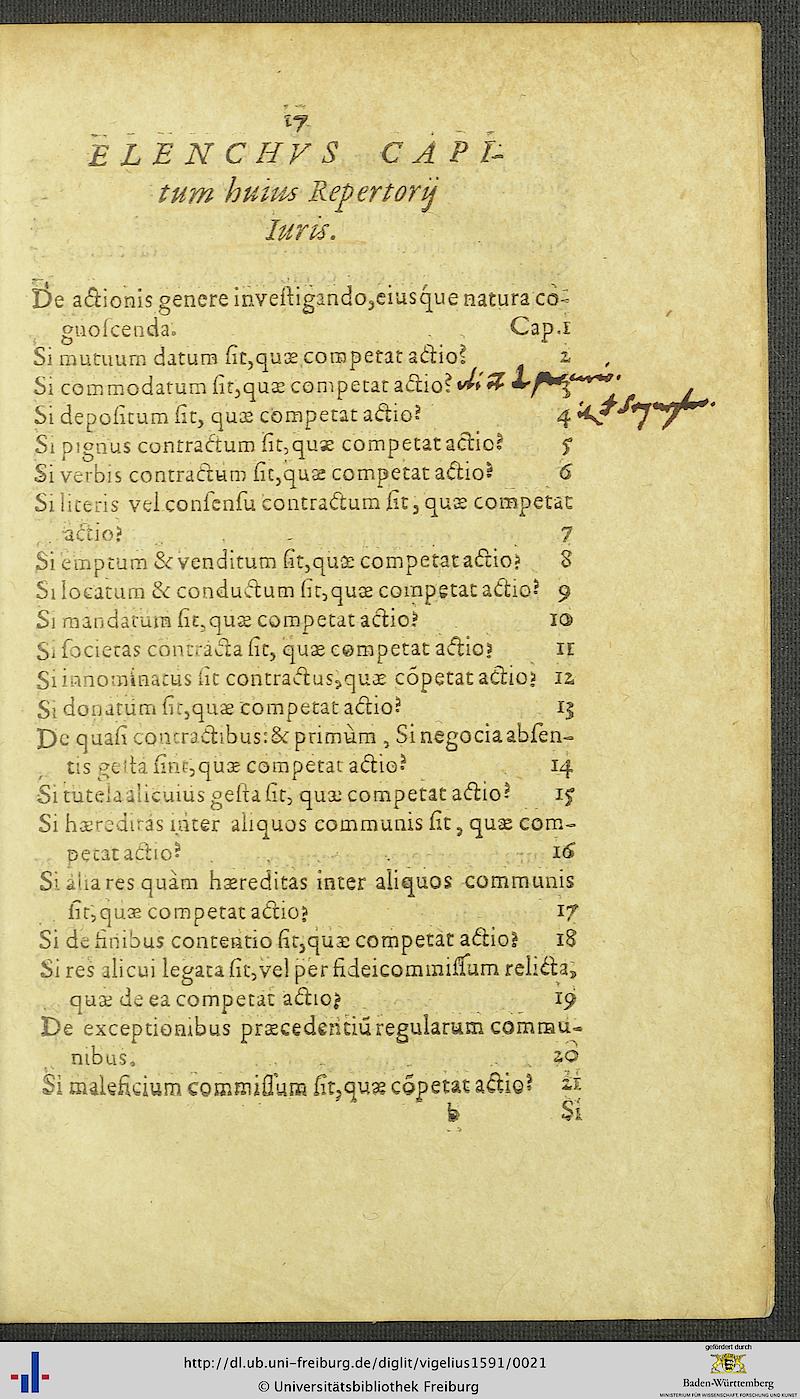 17
ELENCHVS CAPI-
tum huius Repertorij
Iuris.
De actionis genere inueſtigando, eiusque natura cō-
gnoſcenda. Cap. 1
Si mutuum datum ſit, quæ competat actio? 2
Si commodatum ſit, quæ competat actio? 3
Si depoſitum ſit, quæ competat actio? 4
Si pignus contractum ſit, quæ competat actio? 5
Si verbis contractum ſit, quæ competat actio? 6
Si literis vel conſenſu contractum ſit, quæ competat
actio? 7
Si emptum & venditum ſit, quæ competat actio? 8
Si locatum & conductum ſit, quæ competat actio? 9
Si mandatum ſit, quæ competat actio? 10
Si ſocietas contracta ſit, quæ competat actio? 11
Si innominatus ſit contractus, quæ cōpetat actio? 12
Si donatum ſit, quæ competat actio? 13
De quaſi contractibus: & primùm, Si negocia abſen-
tis geſta ſint, quæ competat actio? 14
Si tutela alicuius geſta ſit, quæ competat actio? 15
Si hæreditas inter aliquos communis ſit, quæ com-
petat actio? 16
Si alia res quàm hæreditas inter aliquos communis
ſit, quæ competat actio? 17
Si de finibus contentio ſit, quæ competat actio? 18
Si res alicui legata ſit, vel per fideicommiſſum relicta,
quæ de ea competat actio? 19
De exceptionibus præcedentiū regularum commu-
nibus. 20
Si maleficium commiſſum ſit, quæ cōpetat actio? 21
b Si
http://dl.ub.uni-freiburg.de/diglit/vigelius1591/0021
© Universitätsbibliothek Freiburg
gefördert durch
Baden-Württemberg
MINISTERIUM FÜR WISSENSCHAFT, FORSCHUNG UND KUNST